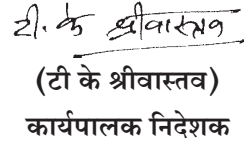 टी. के श्रीवास्तव
(टी के श्रीवास्तव)
कार्यपालक निदेशक